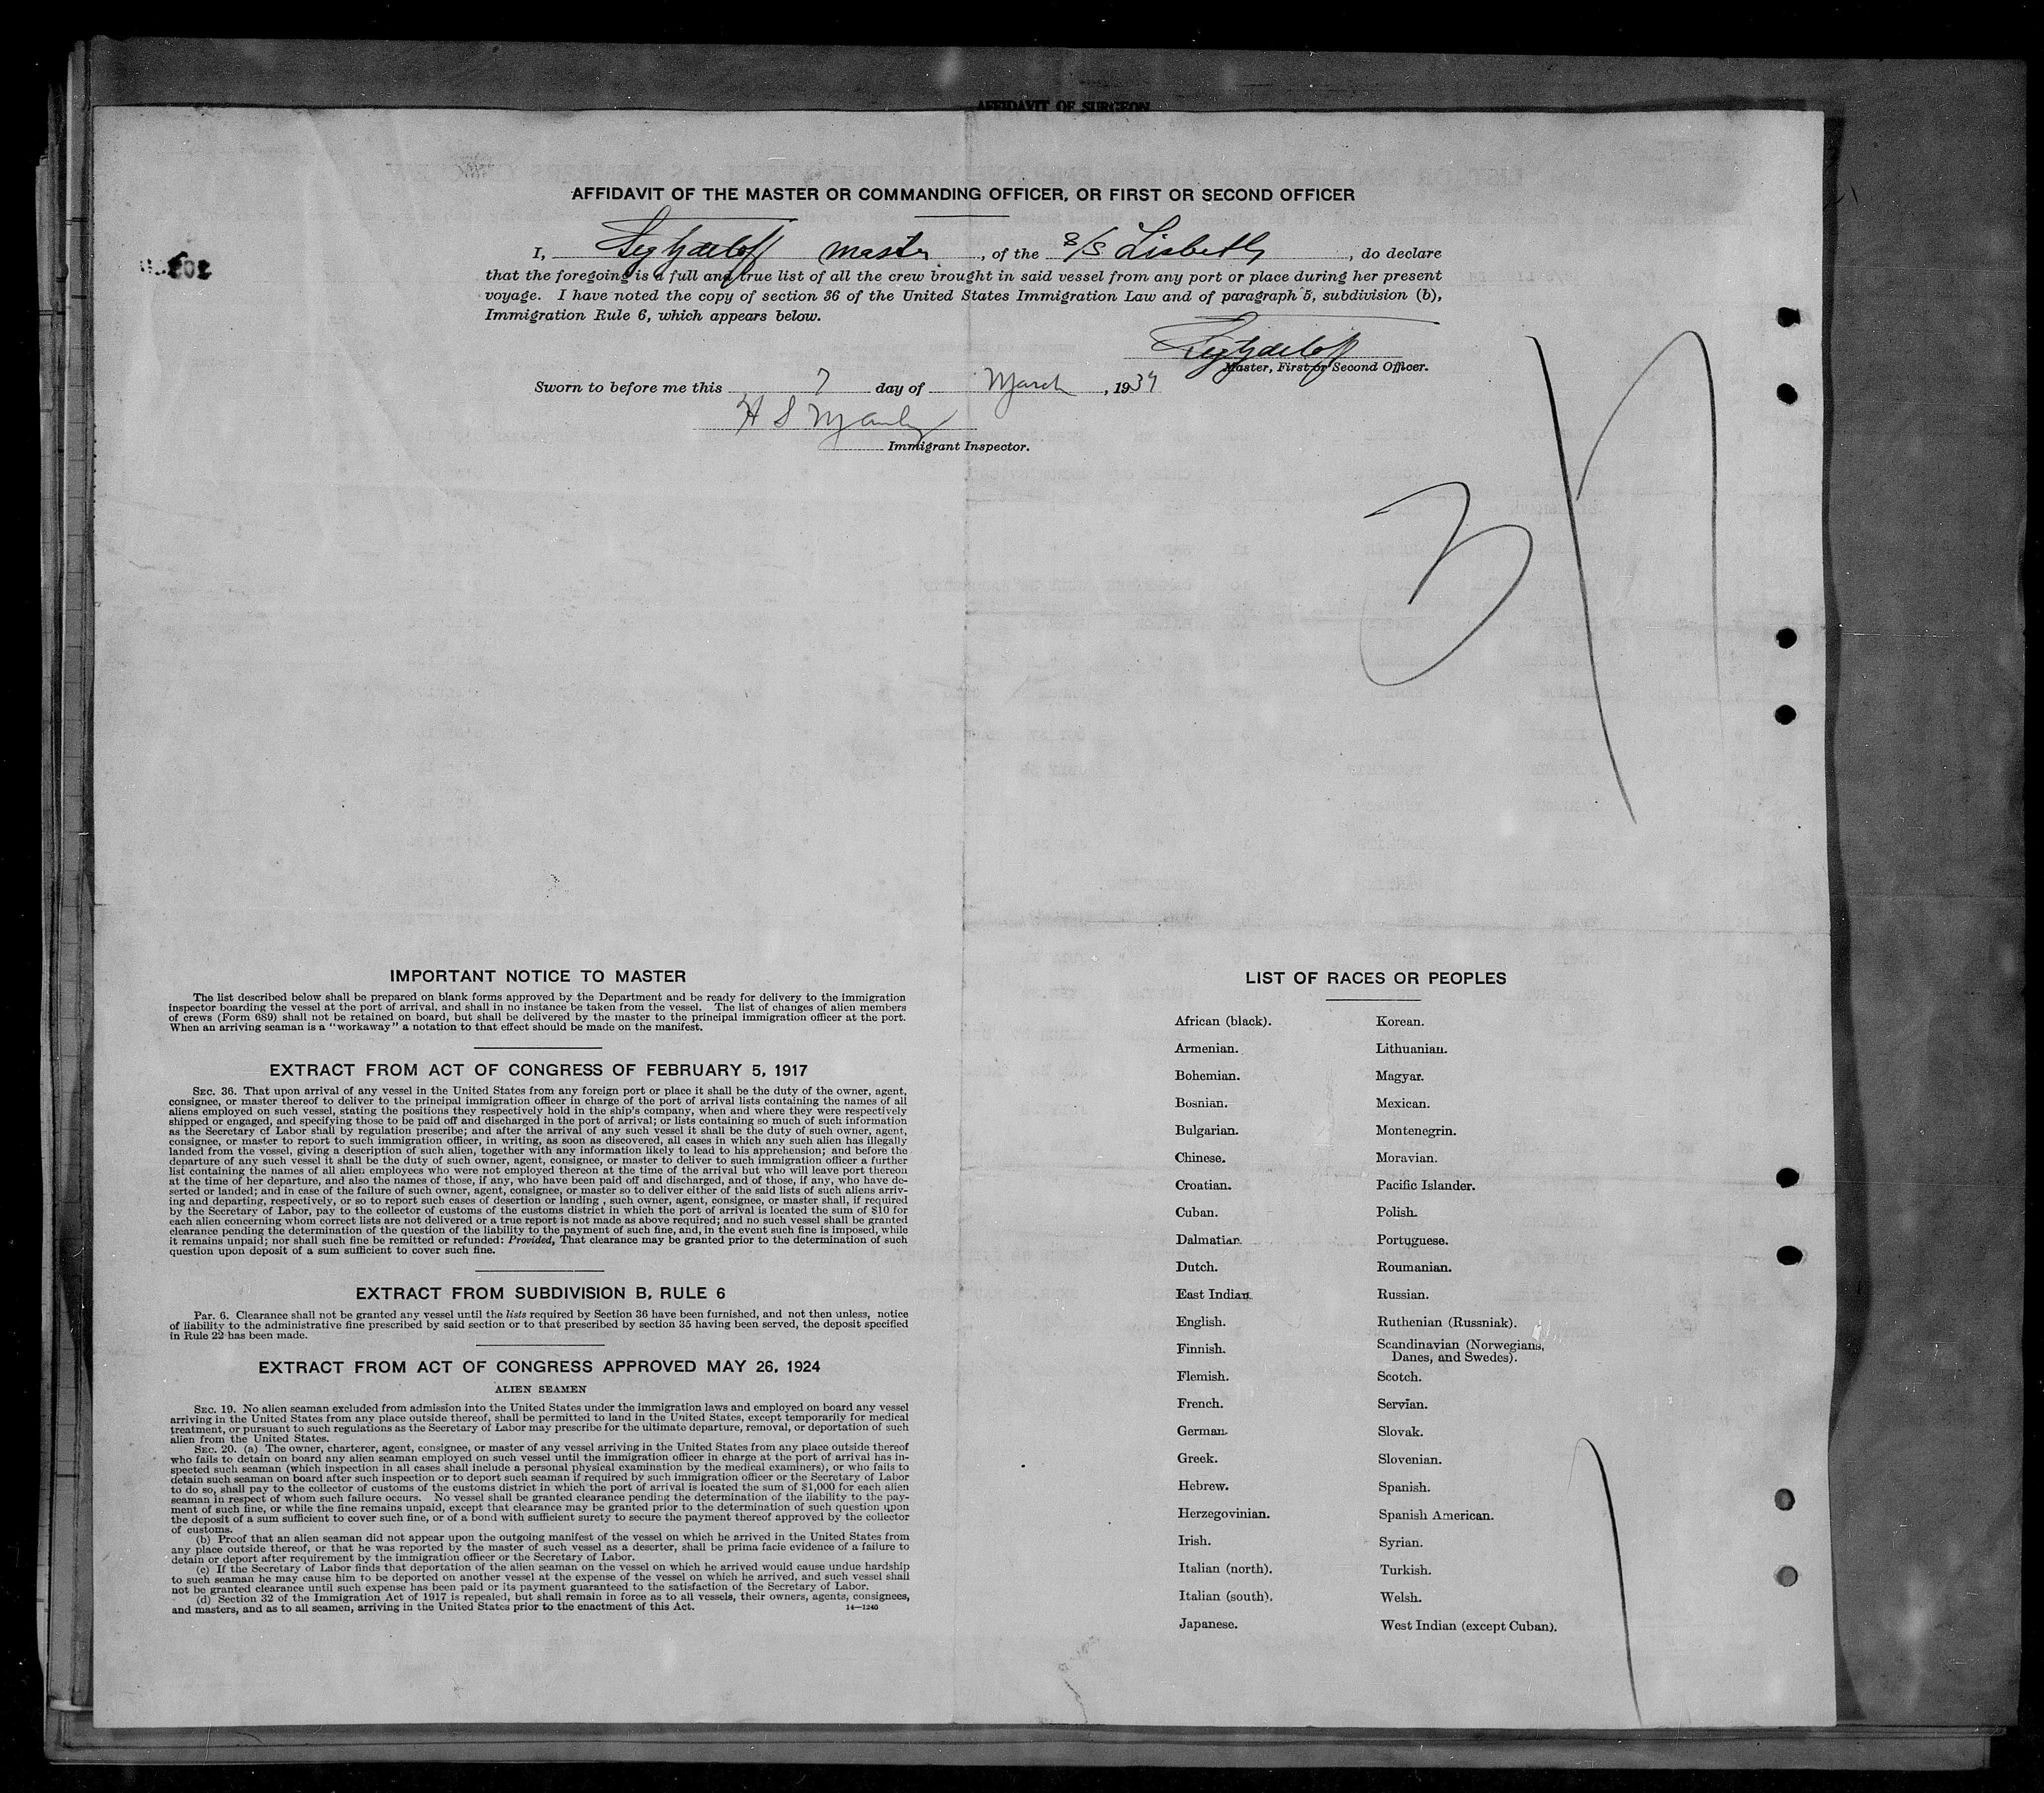 AFFIDAVIT OF SURGEON
AFFIDAVIT OF THE MASTER OR COMMANDING OFFICER, OR FIRST OR SECOND OFFICER
I, master, of the S/S Lisbeth, do declare
that the foregoing is a full and true list of all the crew brought in said vessel from any port or place during her present
voyage. I have noted the copy of section 36 of the United States Immigration Law and of paragraph 5, subdivision (b),
Immigration Rule 6, which appears below.
Master, First or Second Officer.
Sworn to before me this 7 day of March, 19
H S
Immigrant Inspector.
IMPORTANT NOTICE TO MASTER
The list described below shall be prepared on blank forms approved by the Department and be ready for delivery to the immigration
inspector boarding the vessel at the port of arrival, and shall in no instance be taken from the vessel. The list of changes of alien members
of crews (Form 689) shall not be retained on board, but shall be delivered by the master to the principal immigration officer at the port.
When an arriving seaman is a "workaway" a notation to that effect should be made on the manifest.
EXTRACT FROM ACT OF CONGRESS OF FEBRUARY 5, 1917
SEC. 36. That upon arrival of any vessel in the United States from any foreign port or place it shall be the duty of the owner, agent,
consignee, or master thereof to deliver to the principal immigration officer in charge of the port of arrival lists containing the names of all
aliens employed on such vessel, stating the positions they respectively hold in the ship's company, when and where they were respectively
shipped or engaged, and specifying those to be paid off and discharged in the port of arrival; or lists containing so much of such information
as the Secretary of Labor shall by regulation prescribe; and after the arrival of any such vessel it shall be the duty of such owner, agent,
consignee, or master to report to such immigration officer, in writing, as soon as discovered, all cases in which any such alien has illegally
landed from the vessel, giving a description of such alien, together with any information likely to lead to his apprehension; and before the
departure of any such vessel it shall be the duty of such owner, agent, consignee, or master to deliver to such immigration officer a further
list containing the names of all alien employees who were not employed thereon at the time of the arrival but who will leave port thereon
at the time of her departure, and also the names of those, if any, who have been paid off and discharged, and of those, if any, who have de-
serted or landed; and in case of the failure of such owner, agent, consignee, or master so to deliver either of the said lists of such aliens arriv-
ing and departing, respectively, or so to report such cases of desertion or landing , such owner, agent, consignee, or master shall, if required
by the Secretary of Labor, pay to the collector of customs of the customs district in which the port of arrival is located the sum of $10 for
each alien concerning whom correct lists are not delivered or a true report is not made as above required; and no such vessel shall be granted
clearance pending the determination of the question of the liability to the payment of such fine, and, in the event such fine is imposed, while
it remains unpaid; nor shall such fine be remitted or refunded: Provided, That clearance may be granted prior to the determination of such
question upon deposit of a sum sufficient to cover such fine.
EXTRACT FROM SUBDIVISION B, RULE 6
PAR. 6. Clearance shall not be granted any vessel until the lists required by Section 36 have been furnished, and not then unless, notice
of liability to the administrative fine prescribed by said section or to that prescribed by section 35 having been served, the deposit specified
in Rule 22 has been made.
EXTRACT FROM ACT OF CONGRESS APPROVED MAY 26, 1924
ALIEN SEAMEN
SEC. 19. No alien seaman excluded from admission into the United States under the immigration laws and employed on board any vessel
arriving in the United States from any place outside thereof, shall be permitted to land in the United States, except temporarily for medical
treatment, or pursuant to such regulations as the Secretary of Labor may prescribe for the ultimate departure, removal, or deportation of such
alien from the United States.
SEC. 20. (a) The owner, charterer, agent, consignee, or master of any vessel arriving in the United States from any place outside thereof
who fails to detain on board any alien seaman employed on such vessel until the immigration officer in charge at the port of arrival has in-
spected such seaman (which inspection in all cases shall include a personal physical examination by the medical examiners), or who fails to
detain such seaman on board after such inspection or to deport such seaman if required by such immigration officer or the Secretary of Labor
to do so, shall pay to the collector of customs of the customs district in which the port of arrival is located the sum of $1,000 for each alien
seaman in respect of whom such failure occurs. No vessel shall be granted clearance pending the determination of the liability to the pay-
ment of such fine, or while the fine remains unpaid, except that clearance may be granted prior to the determination of such question upon
the deposit of a sum sufficient to cover such fine, or of a bond with sufficient surety to secure the payment thereof approved by the collector
of customs.
(b) Proof that an alien seaman did not appear upon the outgoing manifest of the vessel on which he arrived in the United States from
any place outside thereof, or that he was reported by the master of such vessel as a deserter, shall be prima facie evidence of a failure to
detain or deport after requirement by the immigration officer or the Secretary of Labor.
(c) If the Secretary of Labor finds that deportation of the alien seaman on the vessel on which he arrived would cause undue hardship
to such seaman he may cause him to be deported on another vessel at the expense of the vessel on which he arrived, and such vessel shall
not be granted clearance until such expense has been paid or its payment guaranteed to the satisfaction of the Secretary of Labor.
(d) Section 32 of the Immigration Act of 1917 is repealed, but shall remain in force as to all vessels, their owners, agents, consignees,
and masters, and as to all seamen, arriving in the United States prior to the enactment of this Act.
14—1240
LIST OF RACES OR PEOPLES
African (black).
Armenian.
Bohemian.
Bosnian.
Bulgarian.
Chinese.
Croatian.
Cuban.
Dalmatian.
Dutch.
East Indian.
English.
Finnish.
Flemish.
French.
German.
Greek.
Hebrew.
Herzegovinian.
Irish.
Italian (north).
Italian (south).
Japanese.
Korean.
Lithuanian.
Magyar.
Mexican.
Montenegrin.
Moravian.
Pacific Islander.
Polish.
Portuguese.
Roumanian.
Russian.
Ruthenian (Russniak).
Scandinavian (Norwegians,
Danes, and Swedes).
Scotch.
Servian.
Slovak.
Slovenian.
Spanish.
Spanish American.
Syrian.
Turkish.
Welsh.
West Indian (except Cuban).